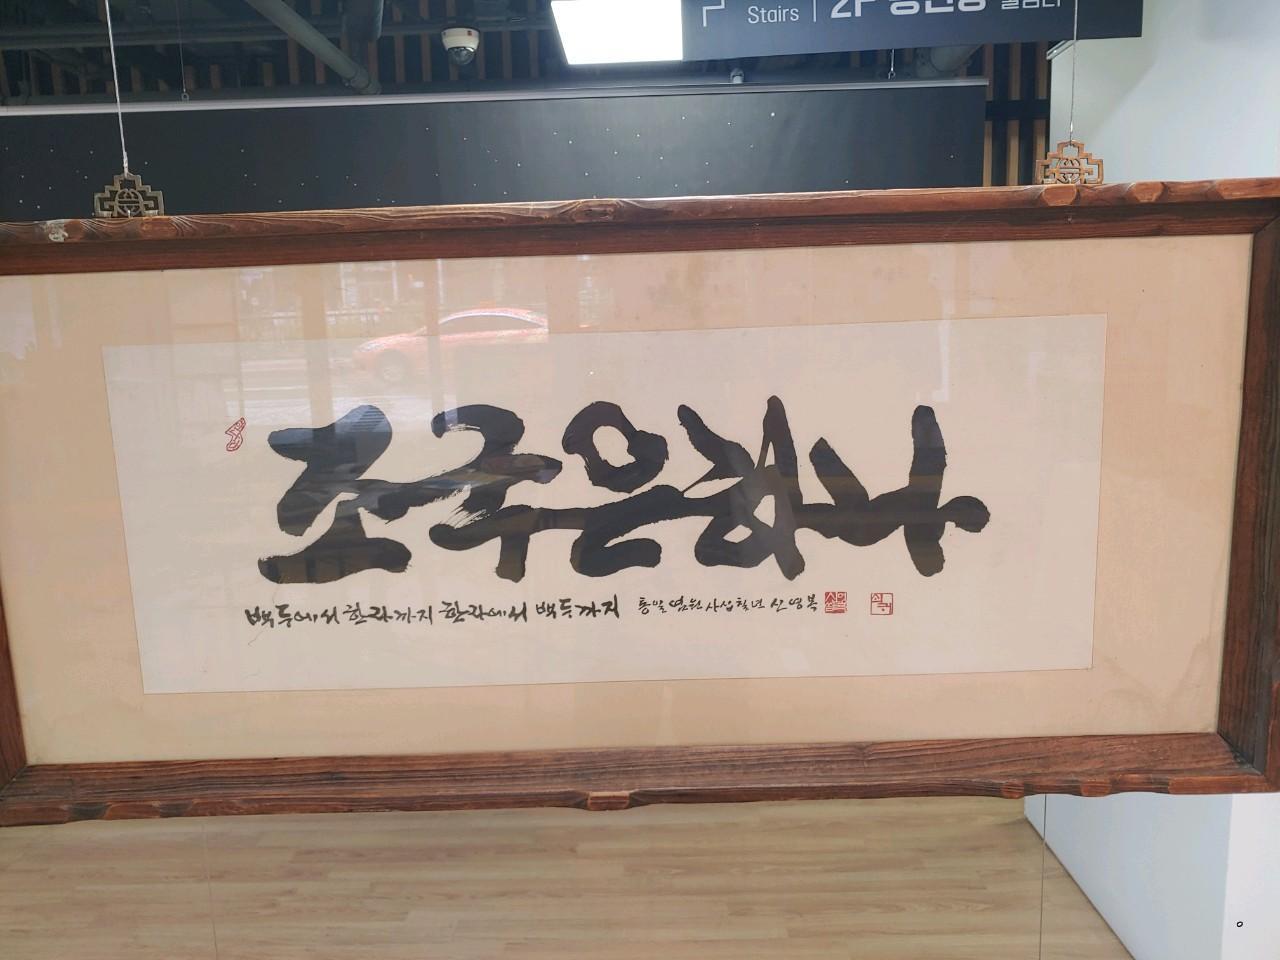 Stairs | 2F
조국은하나
백두에서 한라까지 한라에서 백두까지 통일염원 사십칠년 신영복